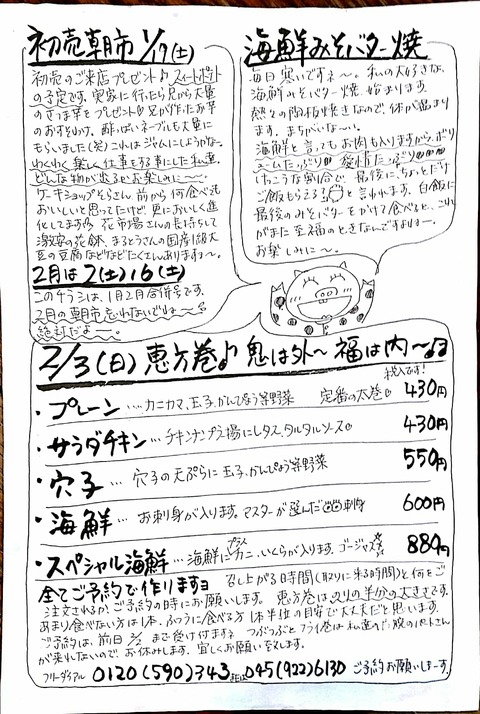 初売朝市 1/19(土)
初売のご来店プレゼント♪スイートポテト
の予定です。実家に行ったら兄から大量
のさつま芋をプレゼント 兄が作ったお芋
のおすそわけ。酢っぱいネーブルも大量に
もらいました(笑)これはジャムにしようかな。
わくわく楽しく仕事をする事にした私達
どんな物が出るかお楽しみに〜。
ケーキショップそらさん 前から何食べても
おいしいと思ってたけど、更においしく進
化してます 花市場さんの長持ちして
激安の花餅、まるとうさんの国産1級大
豆の豆腐などなどたくさんありますョ〜。
2月は2(土)16(土)
このチラシは、1月2月合併号です。
2月の朝市忘れないでね〜
絶対だよ〜。
海鮮みそバター焼
毎日寒いですネ〜。私の大好きな、
海鮮みそバター焼 始まります。
熱々の陶板焼きなので、体が温まり
ます。まちがいな〜い。
海鮮と言ってもお肉も入りますから、ボリ
ュームたっぷり 愛情たっぷり
けっこうな割合で 最後に、ちょっとだけ
ご飯もらえる?と言われます。白飯に
最後のみそバターをかけて食べると、これ
がまた至福のときなんですよねー。
お楽しみに〜。
2/3(日)恵方巻♪鬼は外〜福は内〜♫
税入です!
・プレーン …カニカマ、玉子、かんぴょう等野菜 定番の太巻 430円
・サラダチキン…チキンナンプラ揚にレタス、タルタルソース 430円
・穴子 … 穴子の天ぷらに玉子、かんぴょう等野菜 550円
・海鮮 … お刺身が入ります。マスターが選んだ凸凹刺身 600円
・スペシャル海鮮…海鮮にプラスカニ、いくらが入ります。ゴージャス 880円
全てご予約で作りますョ 召し上がる時間(取りに来る時間)と何をご
注文されるか、ご予約の時にお願いします。恵方巻はのりの半分の大きさです。
あまり食べない方は1本、ふつうに食べる方1本半位の目安で大丈夫だと思います。
ご予約は、前日2/2まで受け付ますネ つぶつぶとフライ巻は私達の片腕のパートさん
が来れないので、お休みします。宜しくお願い致します。
フリーダイアル 0120(590)343 又は 045(922)6130 ご予約お願いしまーす。